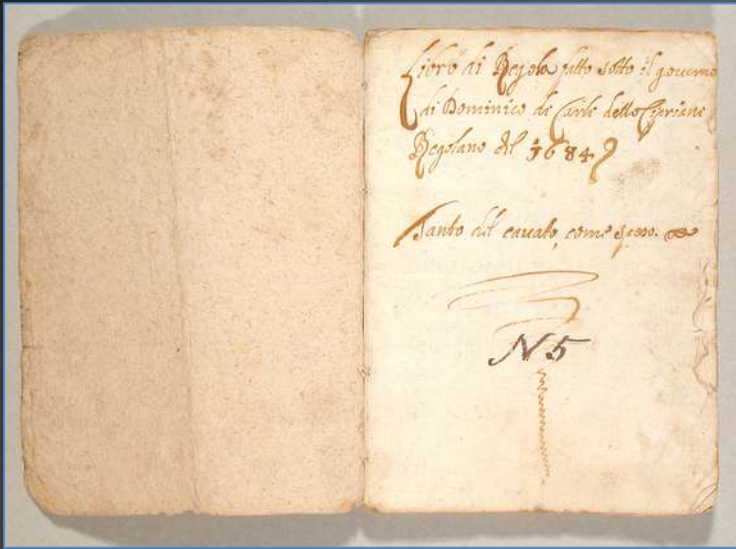 Libro di Regola fatto sotto il governo
di Dominico de Carli detto Cipriano
Regolano del 1684
Tanto del cavato, come speso.
N 5